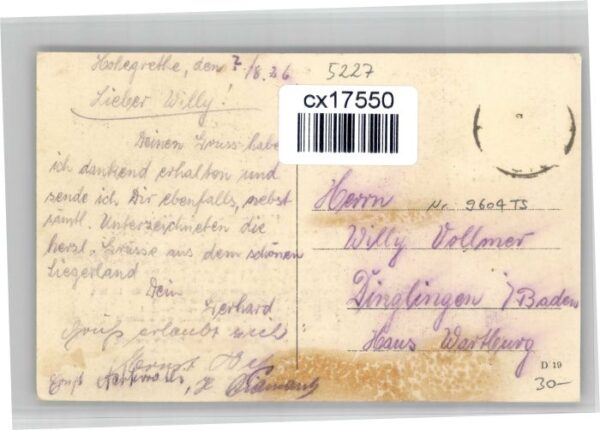 Hohegrethe, den 7/8.26
5227
cx17550
Lieber Willy!
Deinen Gruss habe
ich dankend erhalten und
sende ich Dir ebenfalls, nebst
sämtl. Unterzeichneten die
herzl. Grüsse aus dem schönen
Siegerland
Dein
Gerhard
Gruß erlaubt sich
Ernst
Herrn
Nr. 9604 TS
Willy Vollmer
Dinglingen i/Baden
Haus Wartburg
D 19
30-